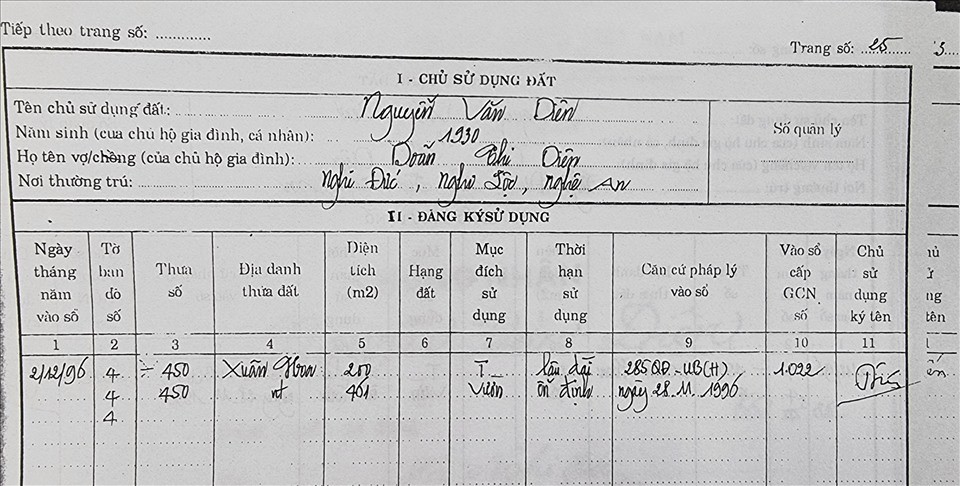 Tiếp theo trang số: .............
Trang số: 25
I - CHỦ SỬ DỤNG ĐẤT
Tên chủ sử dụng đất: Nguyễn Văn Diên
Năm sinh (của chủ hộ gia đình, cá nhân): 1930
Họ tên vợ/chồng (của chủ hộ gia đình): Doãn Thị Diện
Nơi thường trú: Nghi Đức, Nghi Lộc, Nghệ An
Số quản lý
II - ĐĂNG KÝ SỬ DỤNG
Ngày tháng năm vào sổ
Tờ bản đồ số
Thửa số
Địa danh thửa đất
Diện tích (m2)
Hạng đất
Mục đích sử dụng
Thời hạn sử dụng
Căn cứ pháp lý vào sổ
Vào sổ cấp GCN số
Chủ sử dụng ký tên
1 2 3 4 5 6 7 8 9 10 11
2/12/96 4 450 Xuân 200 T lâu dài 285QĐ-UB(H) 1.022
4 450 nt 461 Vườn ổn định ngày 28.11.1996
4